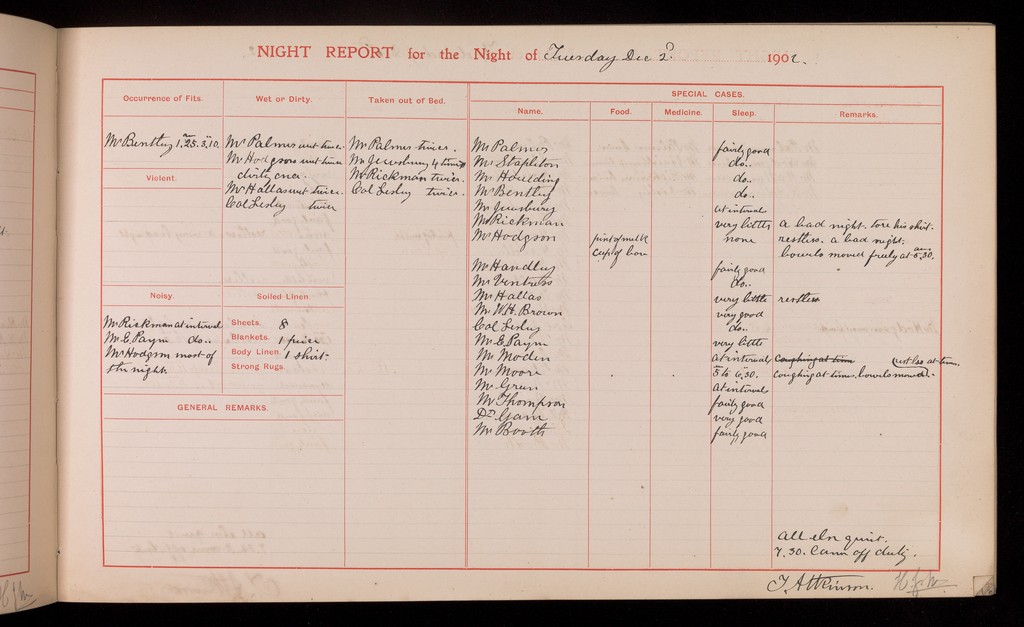 NIGHT REPORT for the Night of Tuesday Dec 2nd 1902.
Occurrence of Fits.
Mr Bentley 1.25. 3.10.
Violent.
Wet or Dirty.
Mr Palmer wet twice.
Mr Hodgson wet twice
dirty once.
Mr Hallas wet twice.
Col Lesley twice
Taken out of Bed.
Mr Palmer twice.
Mr Jewsbury 4 times
Mr Rickman twice.
Col Lesley twice.
Noisy.
Mr Rickman at interval
Mr E. Payne do..
Mr Hodgson most of
the night.
Soiled Linen.
Sheets. 8
Blankets. 1 piece
Body Linen. 1 shirt.
Strong Rugs.
GENERAL REMARKS.
SPECIAL CASES.
Name. Food. Medicine. Sleep. Remarks.
Mr Palmer fairly good
Mr Stapleton do..
Mr Houlding do..
Mr Bentley do..
Mr Jewsbury at interval
Mr Rickman very little a bad night. tore his shirt.
Mr Hodgson pint of milk none restless. a bad night.
cup of bov bowels moved freely at 5.30. am
Mr Handley fairly good
Mr Ventress do..
Mr Hallas very little restless
Mr W.H. Brown very good
Col Lesley do..
Mr E. Payne very little
Mr Moden at intervals Coughing at time restless at times.
Mr Moore 5 to 6.30. Coughing at times. bowels moved.
Mr Green at interval
Mr Thompson fairly good
Dr Gam very good
Mr Booth fairly good
all else quiet.
7.30. Came off duty.
T. Atkinson.